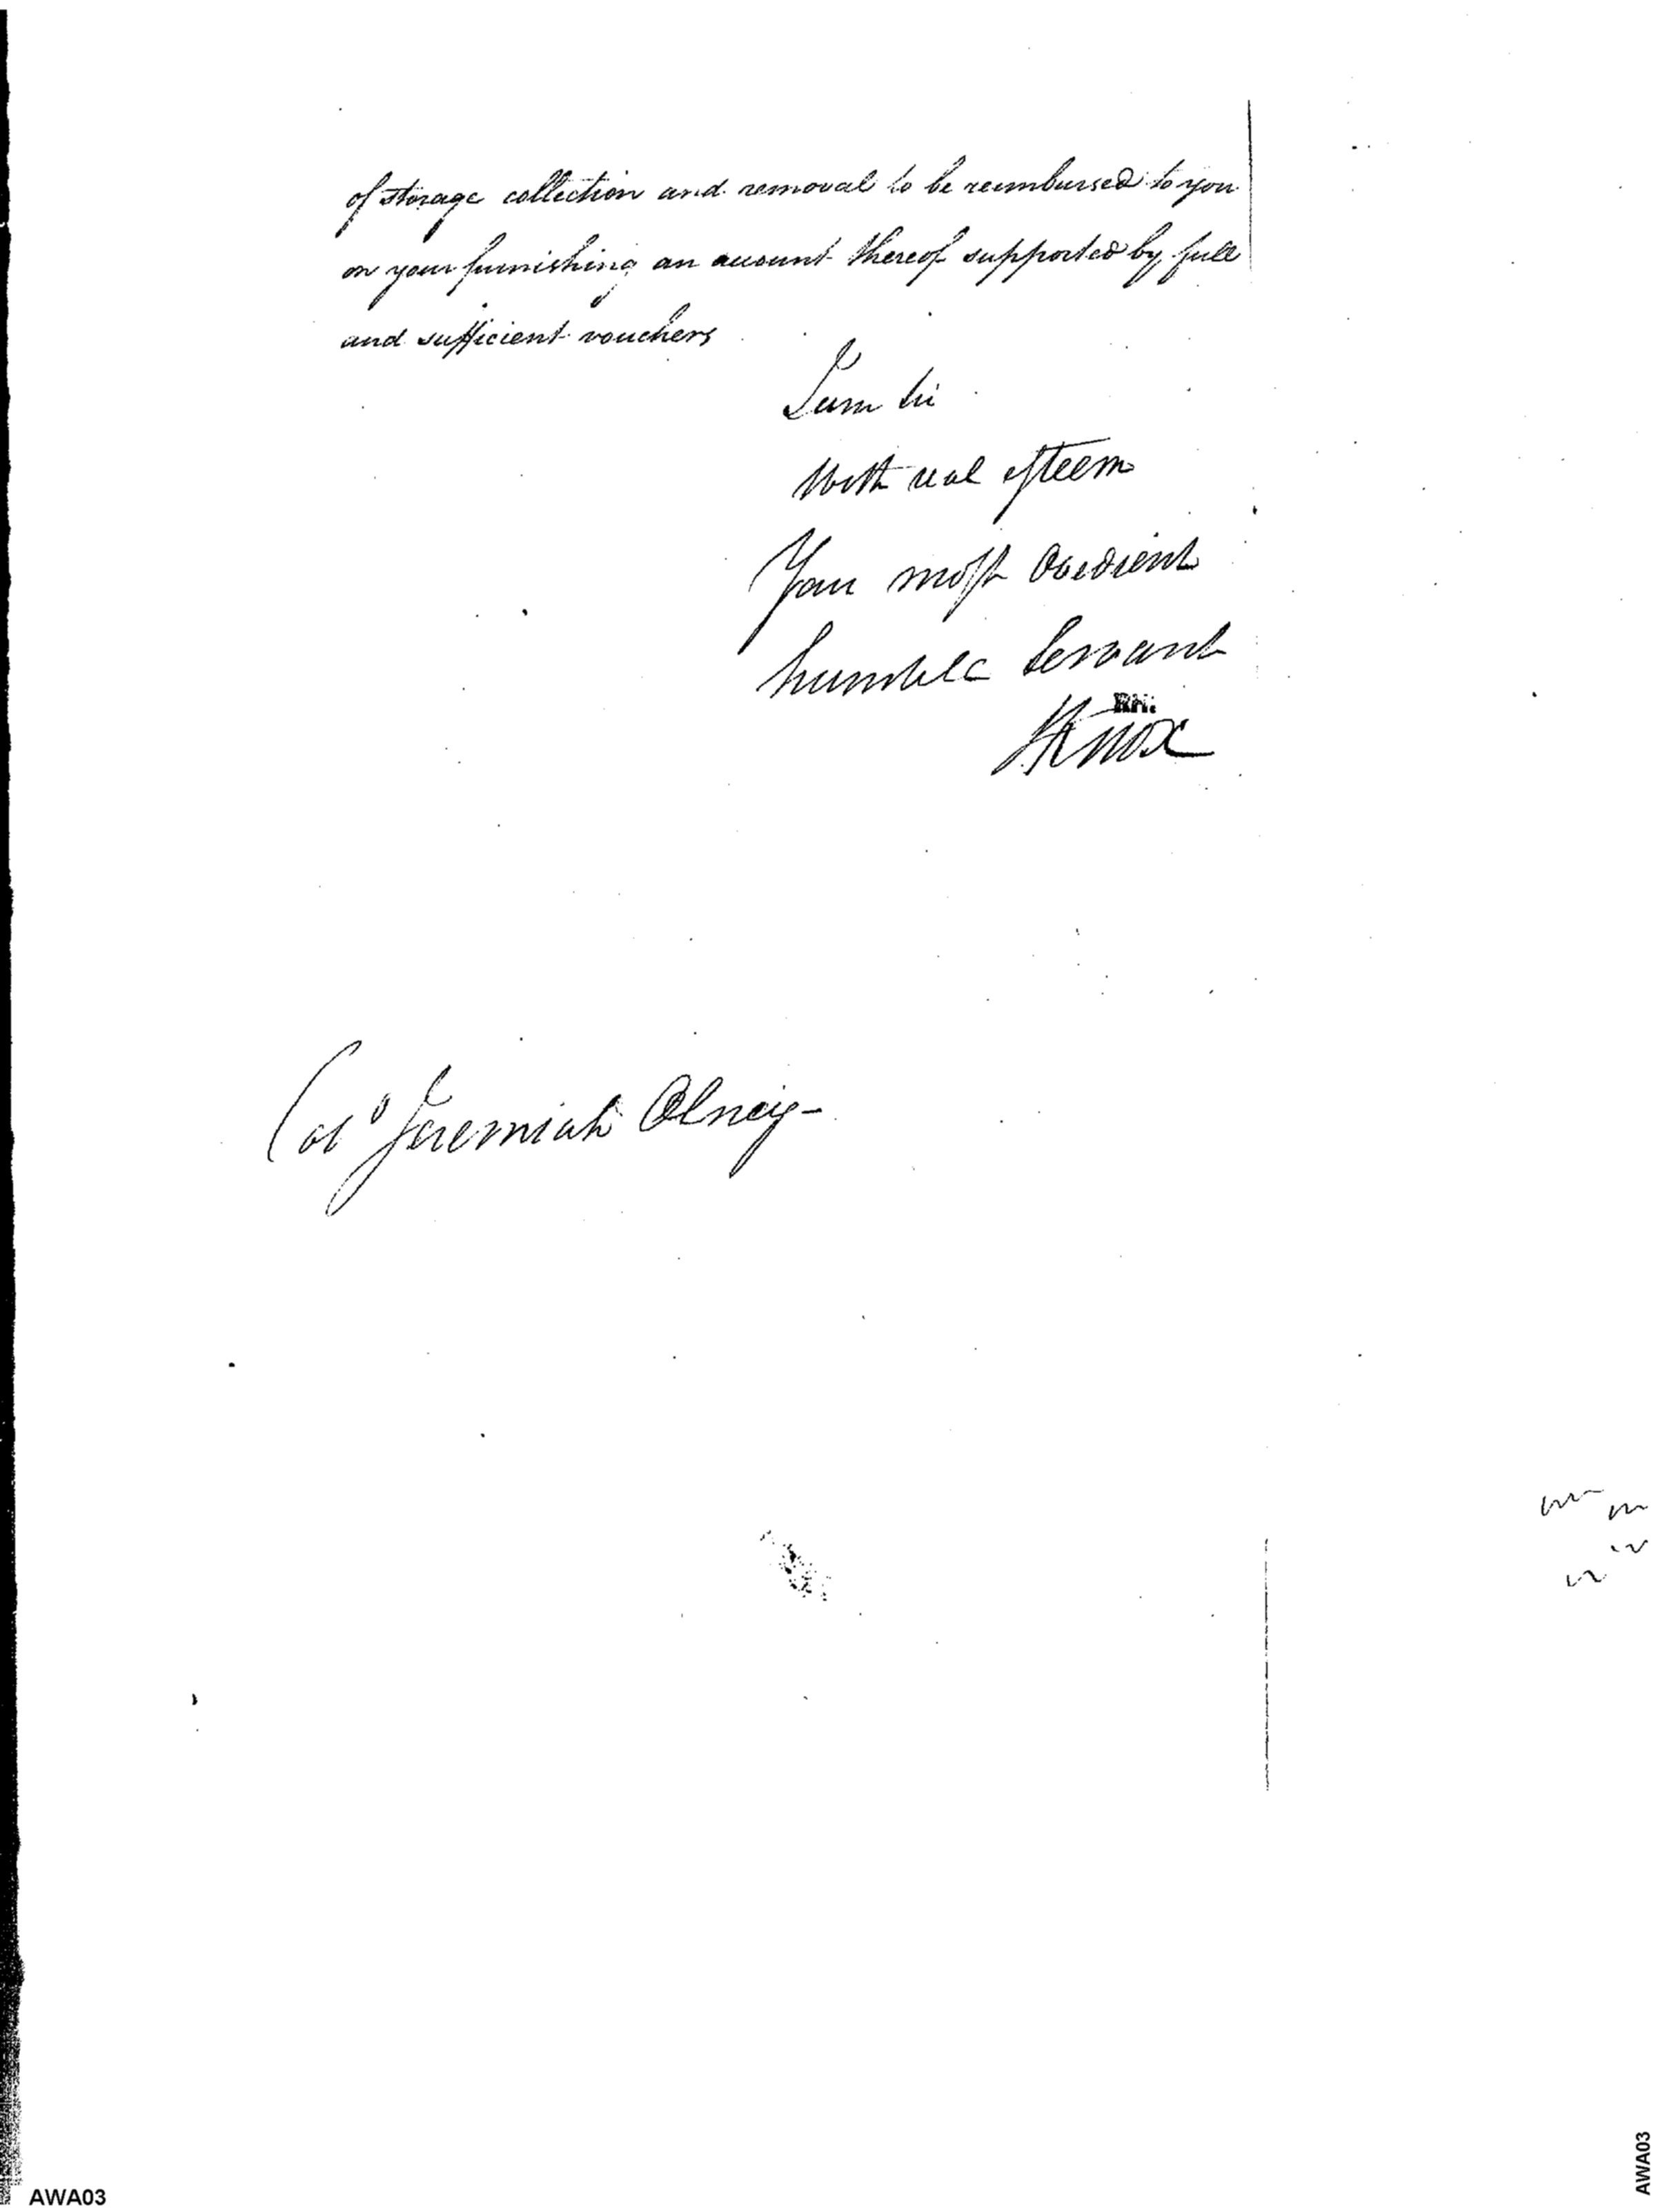 of storage collection and removal to be reimbursed to you
on your furnishing an account thereof supported by full
and sufficient vouchers
I am Sir
With real esteem
Your most obedient
humble Servant
HKnox
Colo Jeremiah Olney-
AWA03
AWA03